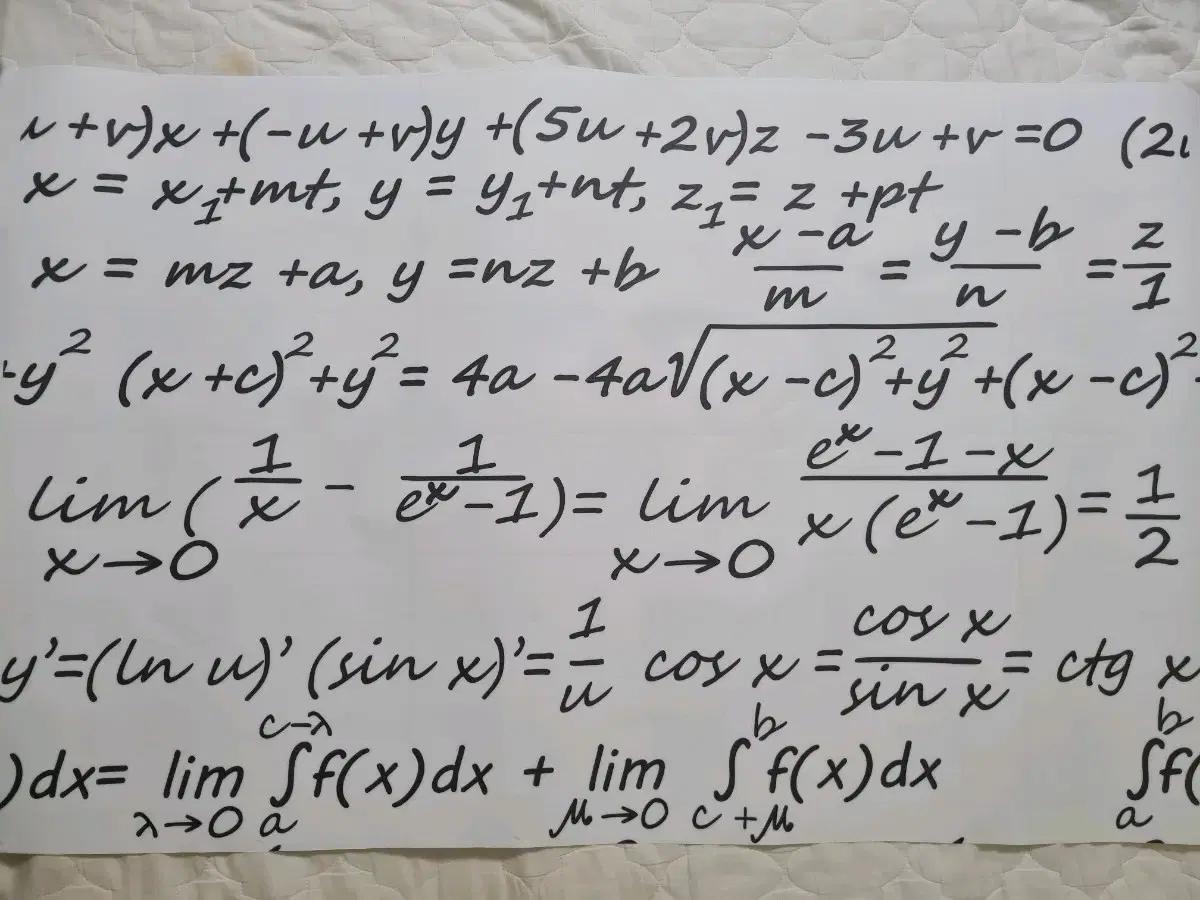 u+v)x +(-u+v)y +(5u+2v)z -3u+v=0 (2u
x = x₁+mt, y = y₁+nt, z₁= z +pt
x = mz +a, y =nz +b (x-a)/m = (y-b)/n = z/1
-y² (x+c)²+y²= 4a -4a√((x-c)²+y²) +(x-c)²
lim x→0 (1/x - 1/(eˣ-1))= lim x→0 (eˣ-1-x)/(x(eˣ-1))= 1/2
y'=(ln u)' (sin x)'= 1/u cos x = cos x/sin x = ctg x
)dx= lim λ→0 ∫ₐ^(c-λ) f(x)dx + lim μ→0 ∫_(c+μ)^b f(x)dx ∫ₐ^b f(